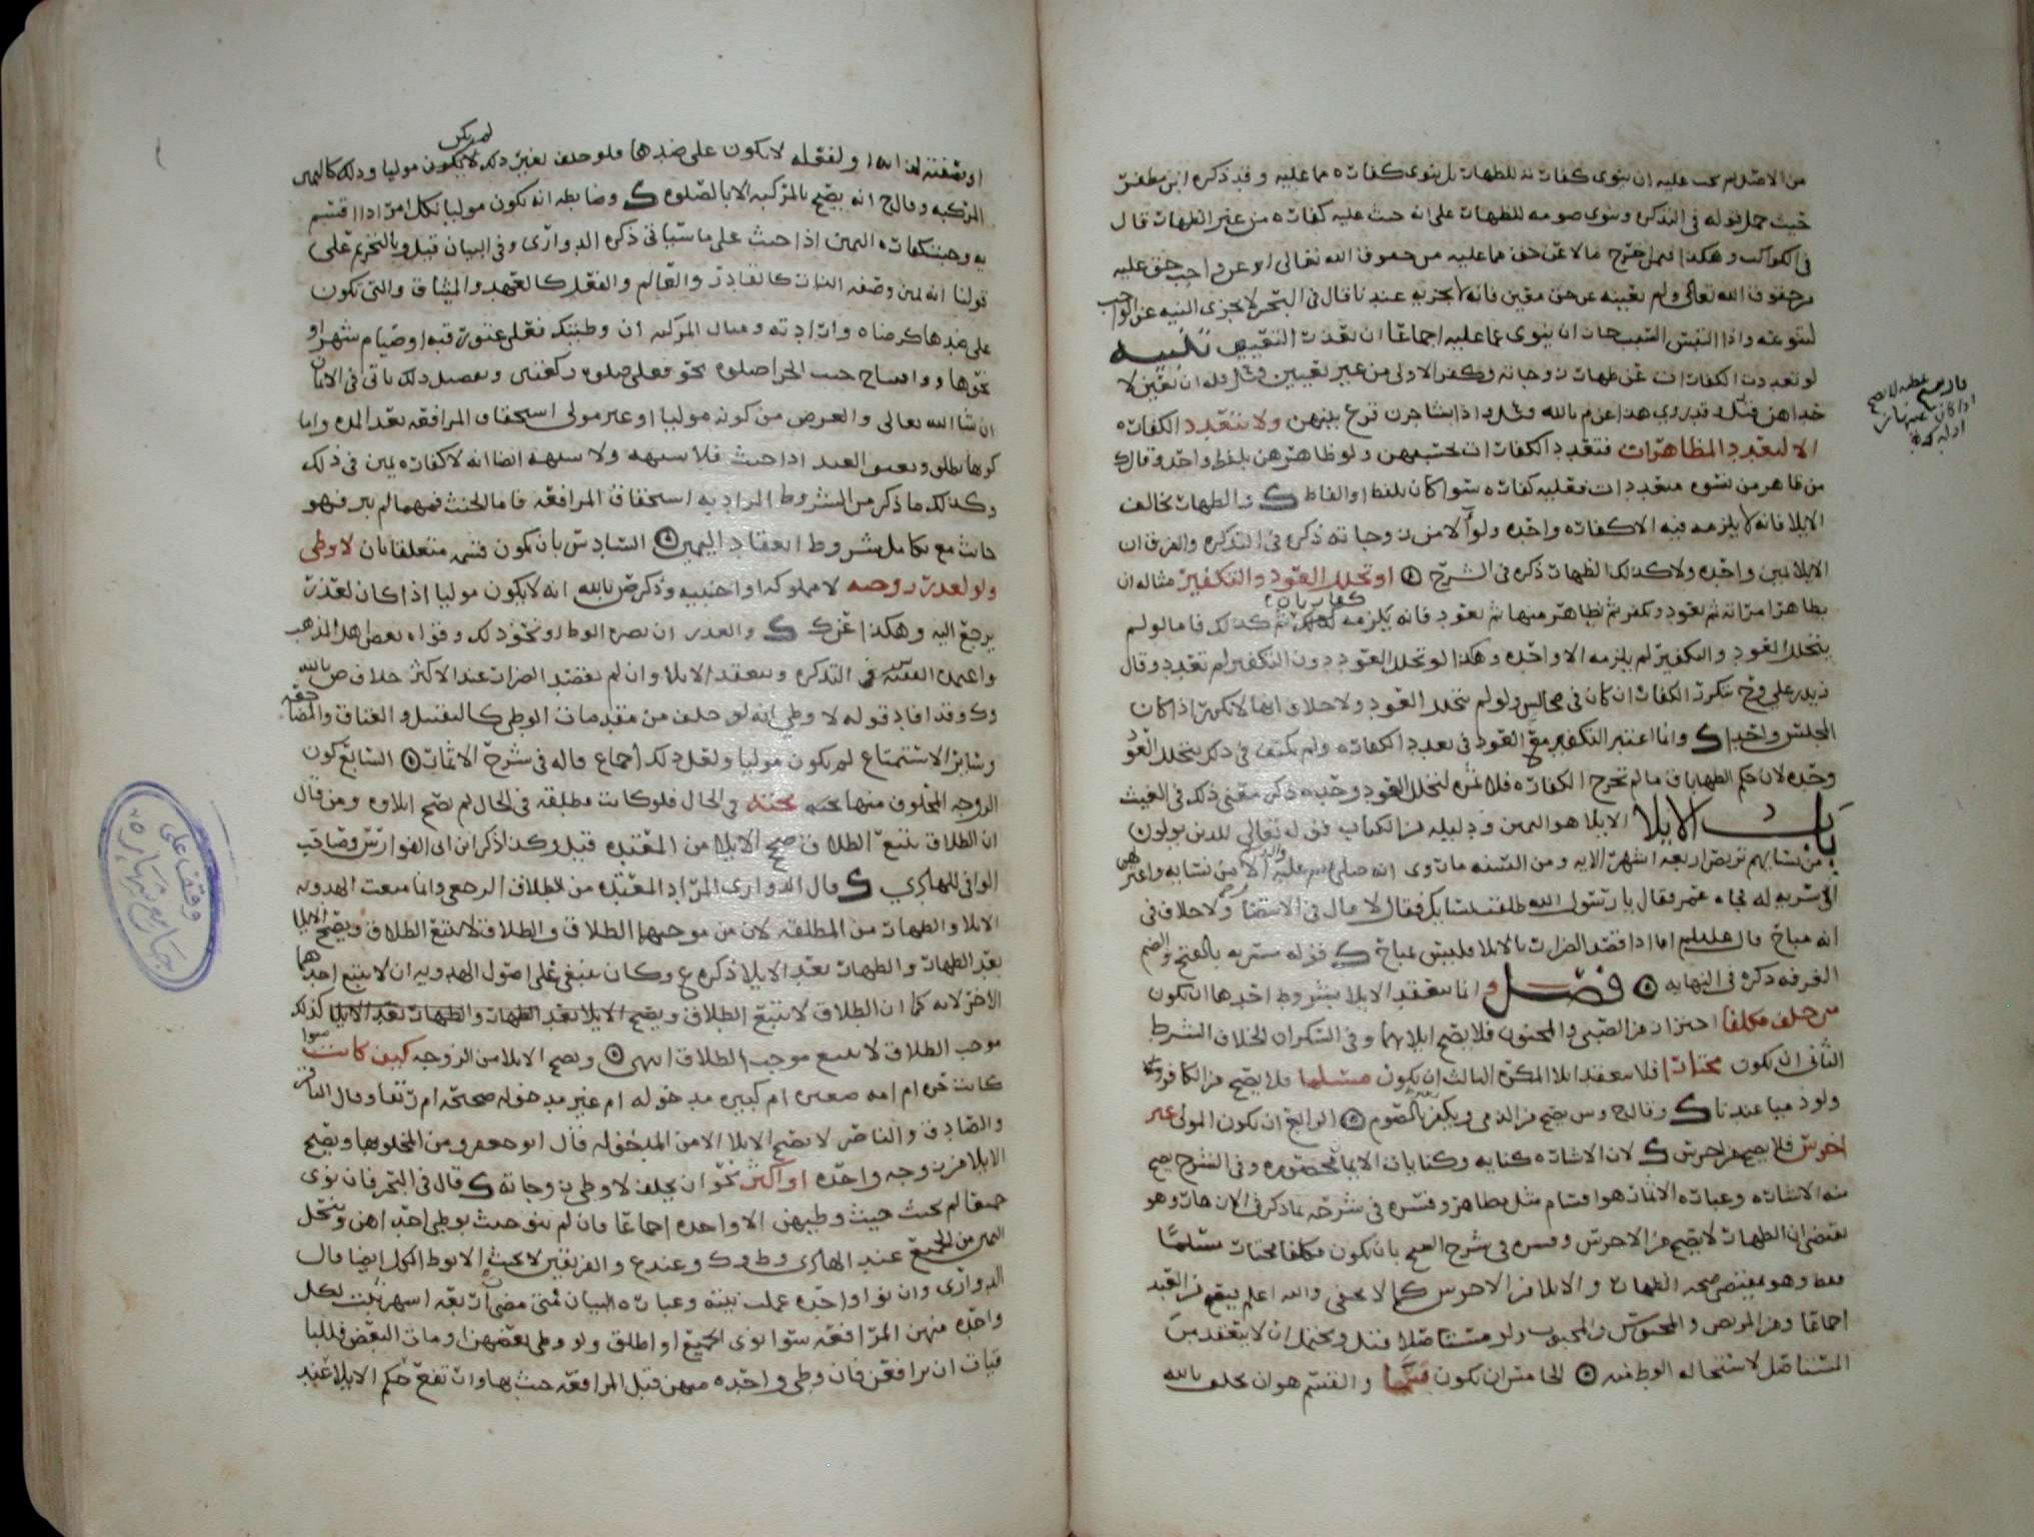 من الاصل لم يجب عليه ان ينوي كفارته للظهار بل ينوي كفارة مما عليه وقد ذكره ابن مظفر
حيث حمل قوله في التذكره وينوي صومه للظهار على انه حيث عليه كفارة من غير الظهار قال
في الكواكب وهكذا فيمن اخرج مالا عن حق مما عليه من حقوق الله تعالى او عن واجب حق عليه
من حقوق الله تعالى ولم يعينه عن حق معين فانه لا يجزيه عندنا قال في البحر لا يجزي النيه عن الواجب
لتنوعه واذا التبس السبب جاز ان ينوي عما عليه اجماعا ان تعذر التعيين تنبيه
لو تعددت الكفارات عن ظهار زوجاته وكفر الاولى من غير تعيين
الكفارة
الا لتعدد المظاهرات فتتعدد الكفارات بحسبهن ولو ظاهرهن بلفظ واحد وقال ك
من ظاهر من نسوه متعددات فعليه كفارة سوا كان بلفظ او الفاظ ك والظهار يخالف
الايلا فانه لا يلزمه فيه الا كفارة واحده ولو آلا من زوجاته ذكره في التذكره والفرق ان
الايلا يمين واحده ولا كذلك الظهار ذكره في الشرح او تخلل العود والتكفير مثاله ان
يظاهر امراته ثم يعود ويكفر ثم يظاهر منها ثم يعود فانه يلزمه كفارتان كذلك فاما لو لم
يتخلل العود والتكفير لم يلزمه الا واحده وهكذا لو تخلل العود دون التكفير لم تتعدد وقال
زيد بن علي وح تتكرر الكفارة ان كان في مجالس ولو لم يتخلل العود ولا خلاف انها لا تكرر اذا كان
المجلس واحدا ك وانما اعتبر التكفير مع العود في تعدد الكفارة ولم يكتف في ذكر تخلل العود
وحده لان حكم الظهار باق ما لم تخرج الكفارة فلا ثمره لتخلل العود وحده ذكر معنى ذلك في الغيث
باب الايلا الايلا هو اليمين ودليله من الكتاب قوله تعالى للذين يولون
من نسايهم تربص اربعة اشهر الايه ومن السنه ما روي انه صلى الله عليه واله آلا من نسايه واعتزلهن
الى مشربه له فجاه عمر فقال يا رسول الله طلقت نسايك فقال لا قال في الانتصار ولا خلاف في
انه مباح قال عليلم اما اذا قصد الضرار بالايلا فليس بمباح ك قوله مشربه بالفتح والضم
الغرفه ذكره في النهايه فصل وانما ينعقد الايلا بشروط احدها ان يكون
من حلف مكلفا احتراز من الصبي والمجنون فلا يصح ايلاهما وفي السكران الخلاف الشرط
الثاني ان يكون مختارا فلا ينعقد ايلا المكره الثالث ان يكون مسلما فلا يصح من الكافر
ولو ذميا عندنا ك وقال ح وس يصح من الذمي ويكفر بالصوم الرابع ان يكون المولي غير
اخرس فلا يصح من اخرس ك لان الاشاره كنايه وكنايات الايمان محصوره وفي الشرح يصح
منه الاشاره وعبارة الاثمار هو اقسام مثل يظاهر وفسره في شرحه بما ذكر في الازهار وهو
يقتضي ان الظهار لا يصح من الاخرس وفسره في شرح الفتح بان يكون مكلفا مختارا مسلما
فقط وهو يقتضي صحة الظهار والايلا من الاخرس كما لا يخفى والله اعلم ويصح من العبد
اجماعا ومن المريض والمحبوس والمجبوب ولو مستاصلا قيل ويحتمل ان لا ينعقد من
المستاصل لاستحالة الوطي منه الخامس ان يكون قسما والقسم هو ان يحلف بالله
او بصفته لذاته او لفعله لا يكون على ضدها فلو حلف بغير ذلك لم يكن موليا وذلك كاليمين
المركبه وقال ح انه يصح بالمركبه الا بالصلوه ك وضابطه انه يكون موليا بكل امر اذا اقسم
به وجبت كفارة اليمين اذا حنث على ما سياتي ذكره الدواري وفي البيان قيل وبالتحريم على
قولنا انه يمين وصفه الذات كالقادر والعالم والفعل كالعهد والميثاق والتي تكون
على ضدها كرضاه وارادته ومثال المركبه ان وطيتك فعلي عتق رقبه او صيام شهر او
نحوها صلوه نحو فعلي صلوه ركعتين وتفصيل ذلك ياتي في الايمان
ان شا الله تعالى والغرض من كونه موليا او غير مولي استحقاق المرافعه بعد المده واما
كونها تطلق ويعتق العبد اذا حنث فلا شبهه ولا شبهه ايضا انه لا كفارة يمين في ذلك
وكذلك ما ذكر من الشروط المراد به استحقاق المرافعه فاما الحنث فمهما لم يبر فهو
حانث مع تكامل شروط انعقاد اليمين السادس بان يكون قسمه متعلقا بان لا وطي
ولو لعذر زوجه لا مملوكه او اجنبيه وذكر ض بالله انه لا يكون موليا اذا كان لعذر
يرجع اليه وهكذا عن ك ك والعذر ان يضره الوطي ونحو ذلك وقواه بعض اهل المذهب
واعتمده الفقيه س في التذكره وينعقد الايلا وان لم يقصد الضرار عند الاكثر خلاف ض بالله
وك وقد افاد قوله لا وطي انه لو حلف من مقدمات الوطي كالتقبيل والعناق والمضاجعه
وساير الاستمتاع لم يكون موليا ولعل ذلك اجماع قاله في شرح الاثمار السابع كون
الزوجه المحلوف منها تحته في الحال فلو كانت مطلقه في الحال لم يصح ايلاوه ومن قال
ان الطلاق يتبع الطلاق صحح الايلا من المعتده قيل وكذا ذكر ابن ابي الفوارس وصاحب
الوافي للهادي ك وقال الدواري المراد المعتده من الطلاق الرجعي وانما منعت الهدويه
الايلا والظهار من المطلقه لان من موجبها الطلاق والطلاق لا يتبع الطلاق ويصح الايلا
بعد الظهار والظهار بعد الايلا ذكره ع وكان ينبغي على اصول الهدويه ان لا يتبع احدهما
الاخر لانه كما ان الطلاق لا يتبع الطلاق كذلك
موجب الطلاق لا يتبع موجب الطلاق انتهى ويصح الايلا من الزوجه كيف كانت سوا
كانت حره ام امه صغيره ام كبيره مدخوله ام غير مدخوله صحيحه ام رتقا وقال الباقر
والصادق والناصر لا يصح الايلا الا من المدخوله قال ابو جعفر ومن المخلو بها ويصح
الايلا من زوجه واحده او اكثر نحو ان يحلف لا وطي زوجاته ك قال في البحر فان نوى
جمعا لم يحنث حيث وطيهن الا واحده اجماعا فان لم ينو حنث بوطي احداهن وتنحل
اليمين من الجميع عند الهادي وط وك وعند ع والفريقين لا يحنث الا بوطي الكل ايضا قال
الدواري وان نوا واحده عملت نيته وعبارة البيان فمتى مضى اربعه اشهر ثبت لكل
واحده منهن المرافعه سوا نوى الجميع او اطلق ولو وطي بعضهن او مات البعض فللبا
قيات ان يرافعن فان وطي واحده منهن قبل المرافعه حنث بها وارتفع حكم الايلا عند
وقف على